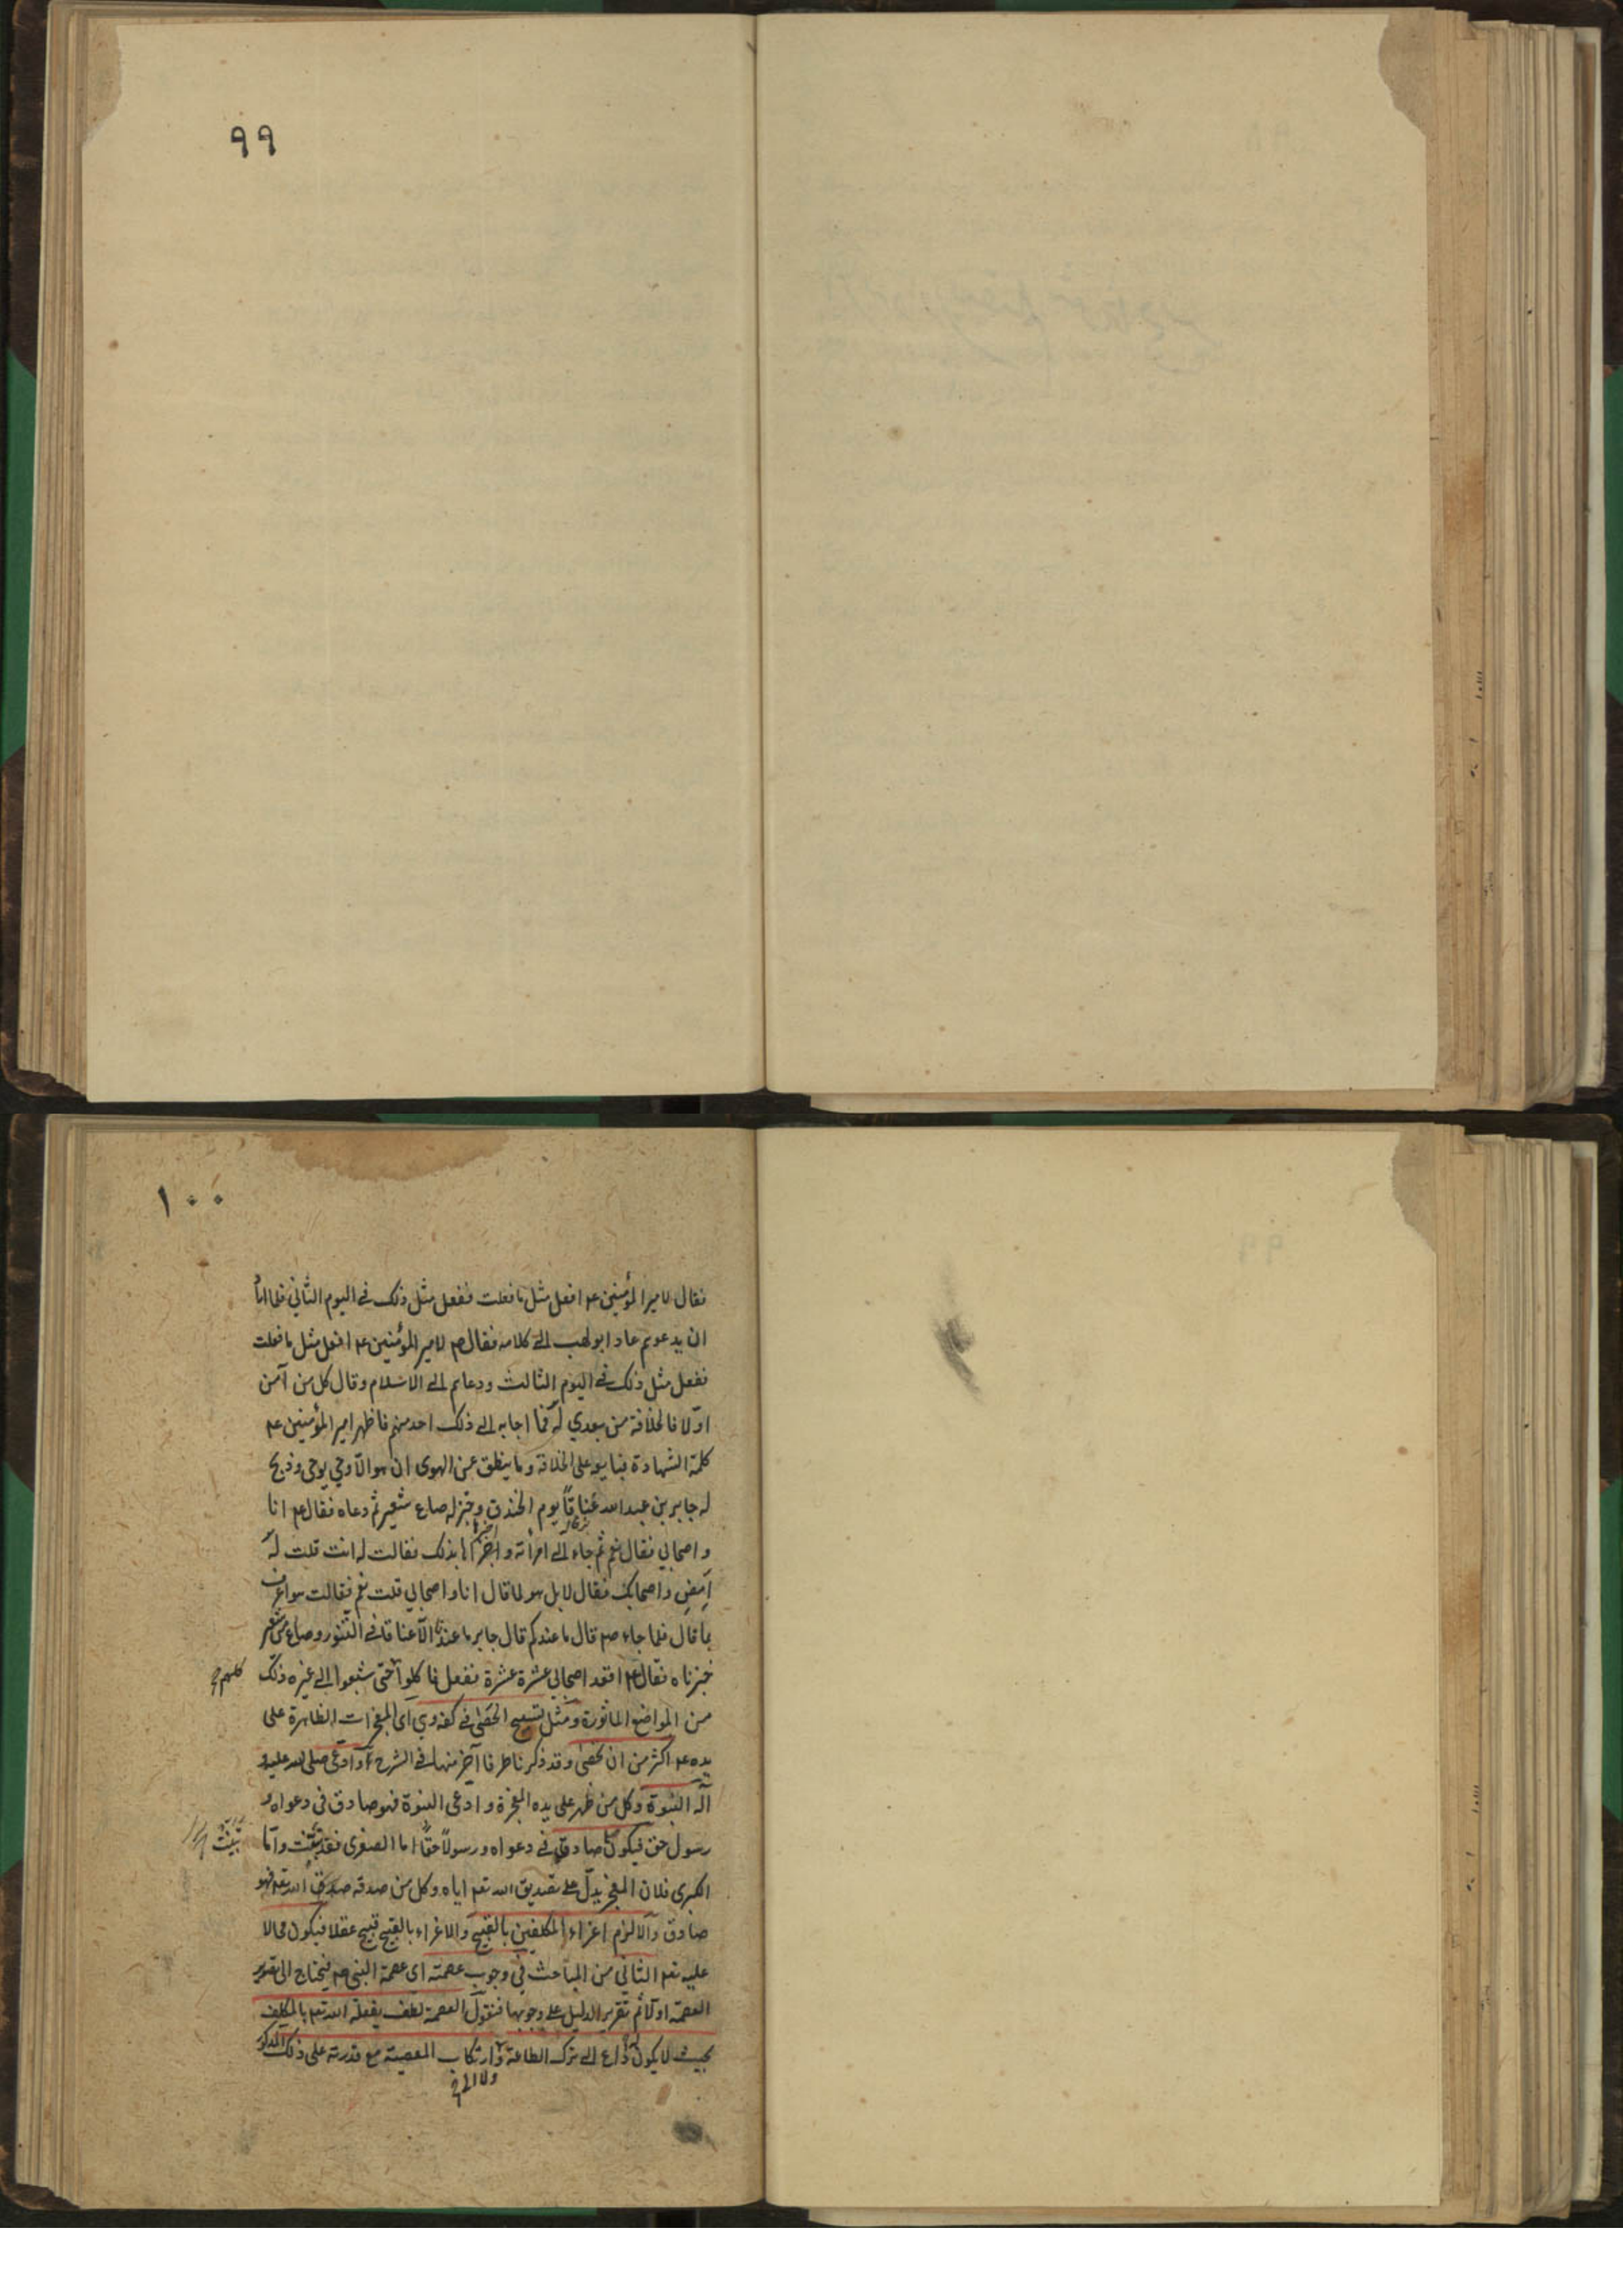 ٩٩
١٠٠
فقال لامير المؤمنين ع م افعل مثل ما فعلت ففعل مثل ذلك في اليوم الثاني فلما
ان يدعوهم عاد ابو لهب الى كلامه فقال ص م لامير المؤمنين ع م افعل مثل ما فعلت
ففعل مثل ذلك في اليوم الثالث ودعاهم الى الاسلام وقال كل من آمن
اولا فالخلافة من بعدي له فما اجابه الى ذلك احد منهم فاظهر امير المؤمنين ع م
كلمة الشهادة فبايعه على الخلافة وما ينطق عن الهوى ان هو الا وحي يوحى وذبح
له جابر بن عبد الله عناقا يوم الخندق وخبز له صاع شعير ثم دعاه فقال ع م انا
واصحابي فقال نعم ثم جاء الى امرأته واخبرها بذلك فقالت له انت قلت له
امض واصحابك فقال لا بل هو لما قال انا واصحابي قلت نعم فقالت هو اعرف
بما قال فلما جاء ص م قال ما عندكم قال جابر ما عندنا الا عناق في التنور وصاع من شعير
خبزناه فقال ع م اقعد اصحابي عشرة عشرة ففعل فاكلوا حتى شبعوا الى غير ذلك
كلهم
من المواضع الماثورة ومثل تسبيح الحصى في كفه وهي اى المعجزات الظاهرة على
يده ع م اكثر من ان تحصى وقد ذكرنا طرفا آخر منها في الشرح وادعى صلى الله عليه و
آله النبوة وكل من ظهر على يده المعجزة وادعى النبوة فهو صادق في دعواه و
رسول حق فيكون صادقا في دعواه ورسولا حقا اما الصغرى فقد بينت واما
بينت
الكبرى فلان المعجز يدل على تصديق الله تعم اياه وكل من صدقه الله تعم فهو
صادق والا لزم اغراء المكلفين بالقبيح والاغراء بالقبيح قبيح عقلا فيكون محالا
عليه تعم الثاني من المباحث في وجوب عصمته اى عصمة النبي ص م فيحتاج الى تقرير
العصمة اولا ثم تقرير الدليل على وجوبها فنقول العصمة لطف يفعله الله تعم بالمكلف
بحيث لا يكون له داع الى ترك الطاعة وارتكاب المعصية مع قدرته على ذلك